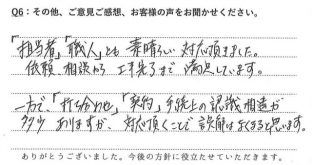 Q6：その他、ご意見ご感想、お客様の声をお聞かせください。
「担当者」「職人」とも 素晴らしい 対応頂きました。
依頼、相談から 工事完了まで 満足しています。
一方で、「打ち合わせ」「契約」手続上の 認識相違が
多少 ありますが、対応頂くことで はよくなると思います。
ありがとうございました。今後の方針に役立たせていただきます。